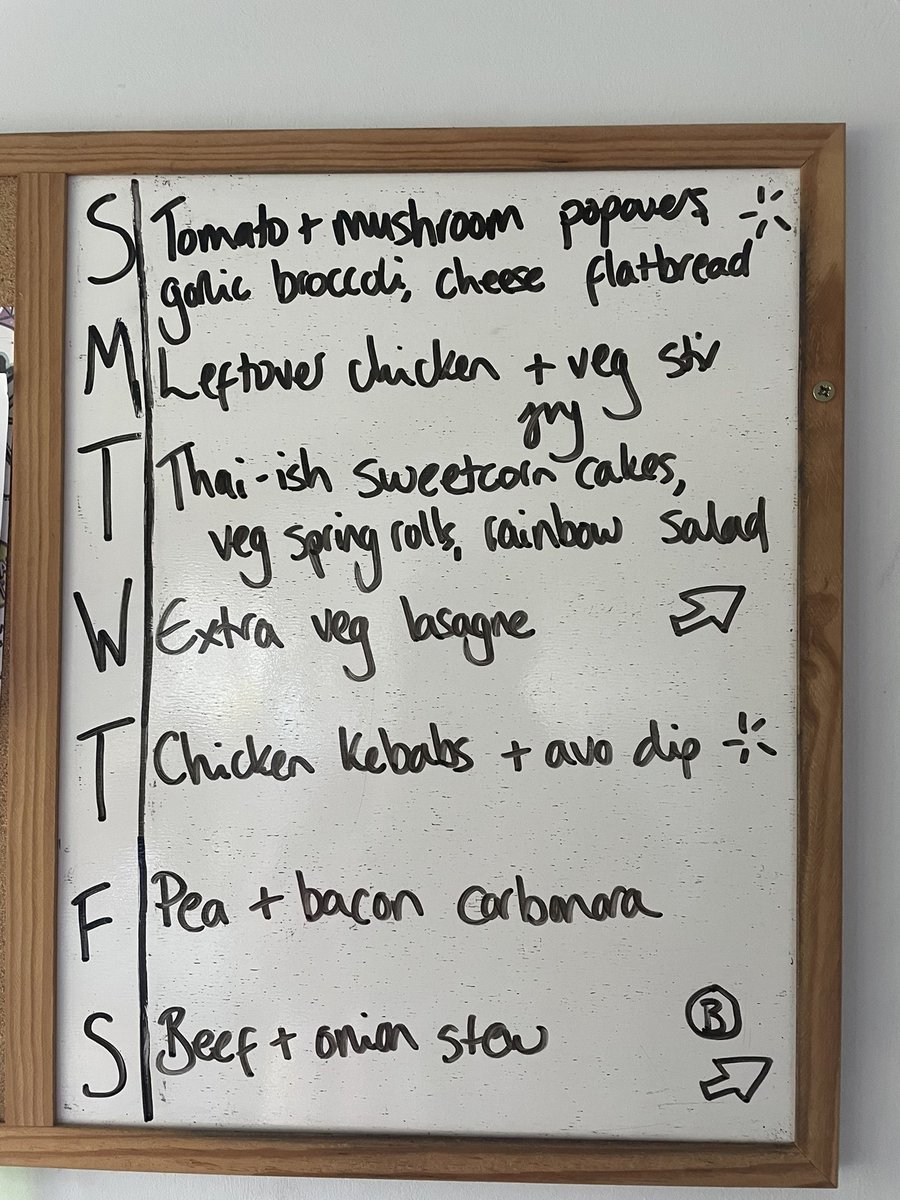 S Tomato + mushroom popovers
garlic broccoli, cheese flatbread
M Leftover chicken + veg stir
fry
T Thai-ish sweetcorn cakes,
veg spring rolls, rainbow salad
W Extra veg lasagne
T Chicken kebabs + avo dip
F Pea + bacon carbonara
B
S Beef + onion stew